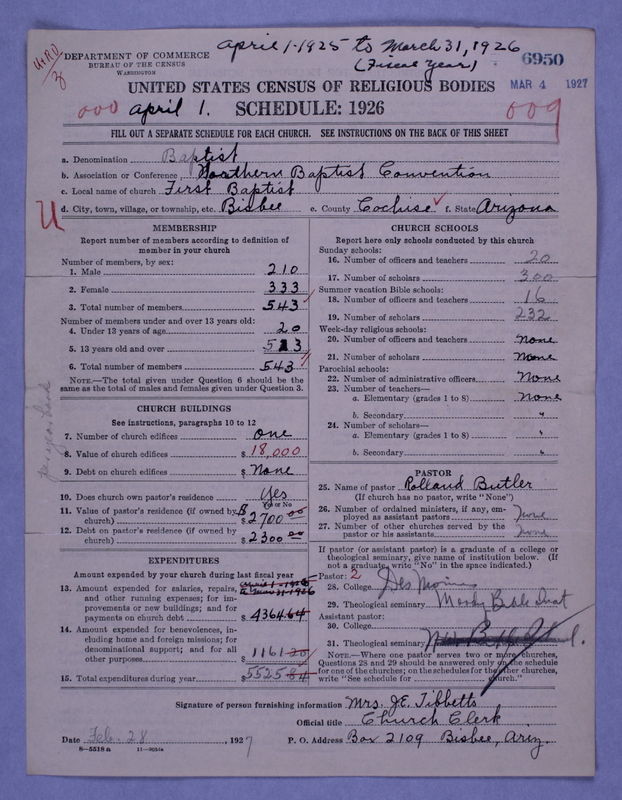 April 1-1925 to March 31, 1926
(Fiscal Year)
DEPARTMENT OF COMMERCE
BUREAU OF THE CENSUS
WASHINGTON
6950
MAR 4 1927
UNITED STATES CENSUS OF RELIGIOUS BODIES
000 April 1. SCHEDULE: 1926 009
FILL OUT A SEPARATE SCHEDULE FOR EACH CHURCH. SEE INSTRUCTIONS ON THE BACK OF THIS SHEET
a. Denomination Baptist
b. Association or Conference Northern Baptist Convention
c. Local name of church First Baptist
d. City, town, village, or township, etc. Bisbee e. County Cochise f. State Arizona
U
MEMBERSHIP
Report number of members according to definition of
member in your church
Number of members, by sex:
1. Male 210
2. Female 333
3. Total number of members 543
Number of members under and over 13 years old:
4. Under 13 years of age 20
5. 13 years old and over 523
6. Total number of members 543
NOTE.—The total given under Question 6 should be the
same as the total of males and females given under Question 3.
CHURCH BUILDINGS
See instructions, paragraphs 10 to 12
7. Number of church edifices one
8. Value of church edifices $ 18,000
9. Debt on church edifices $ None
10. Does church own pastor's residence Yes
Yes or No
11. Value of pastor's residence (if owned by
church) $ 2700 00
12. Debt on pastor's residence (if owned by
church) $ 2300 00
EXPENDITURES
Amount expended by your church during last fiscal year
April 1-1925
to Mar 31-1926
13. Amount expended for salaries, repairs,
and other running expenses; for im-
provements or new buildings; and for
payments on church debt $ 4364 64
14. Amount expended for benevolences, in-
cluding home and foreign missions; for
denominational support; and for all
other purposes $ 1161 20
15. Total expenditures during year $ 5525 84
CHURCH SCHOOLS
Report here only schools conducted by this church
Sunday schools:
16. Number of officers and teachers 20
17. Number of scholars 300
Summer vacation Bible schools:
18. Number of officers and teachers 16
19. Number of scholars 232
Week-day religious schools:
20. Number of officers and teachers None
21. Number of scholars None
Parochial schools:
22. Number of administrative officers None
23. Number of teachers—
a. Elementary (grades 1 to 8) None
b. Secondary "
24. Number of scholars—
a. Elementary (grades 1 to 8) "
b. Secondary "
PASTOR
25. Name of pastor Rolland Butler
(If church has no pastor, write "None")
26. Number of ordained ministers, if any, em-
ployed as assistant pastors None
27. Number of other churches served by the
pastor or his assistants None
If pastor (or assistant pastor) is a graduate of a college or
theological seminary, give name of institution below. (If
not a graduate, write "No" in the space indicated.)
Pastor: 2
28. College Des Moines
29. Theological seminary Moody Bible Inst
Assistant pastor:
30. College
31. Theological seminary
NOTE.—Where one pastor serves two or more churches,
Questions 28 and 29 should be answered only on the schedule
for one of the churches; on the schedules for the other churches,
write "See schedule for church."
Signature of person furnishing information Mrs. J.E. Tibbetts
Official title Church Clerk
Date Feb. 28, 1927 P. O. Address Box 2109 Bisbee, Ariz.
8—5518a 11—9054a